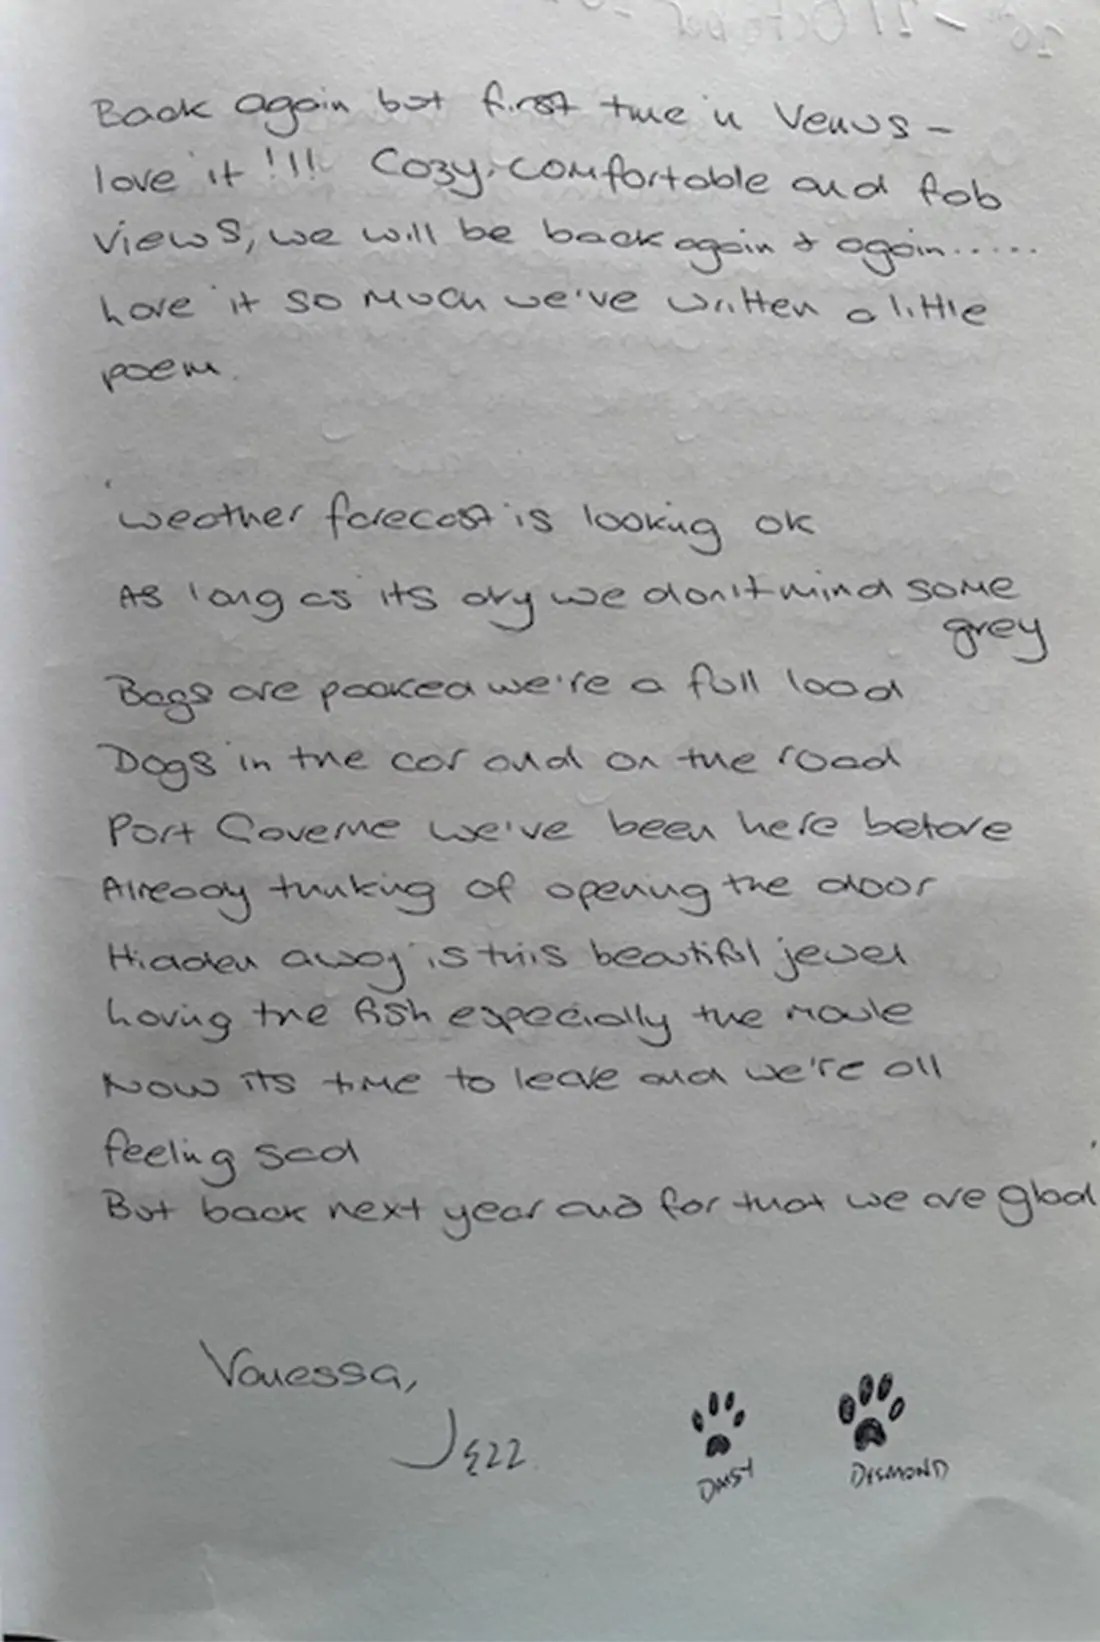 Back again but first time in Venus -
love it !!! Cozy, comfortable and fab
views, we will be back again & again......
Love it so much we've written a little
poem.
Weather forecast is looking ok
As long as its dry we don't mind some
grey
Bags are packed we're a full load
Dogs in the car and on the road
Port Gaverne we've been here before
Already thinking of opening the door
Hidden away is this beautiful jewel
Loving the fish especially the moule
Now its time to leave and we're all
feeling sad
But back next year and for that we are glad
Vanessa,
Jezz
DAISY
DESMOND